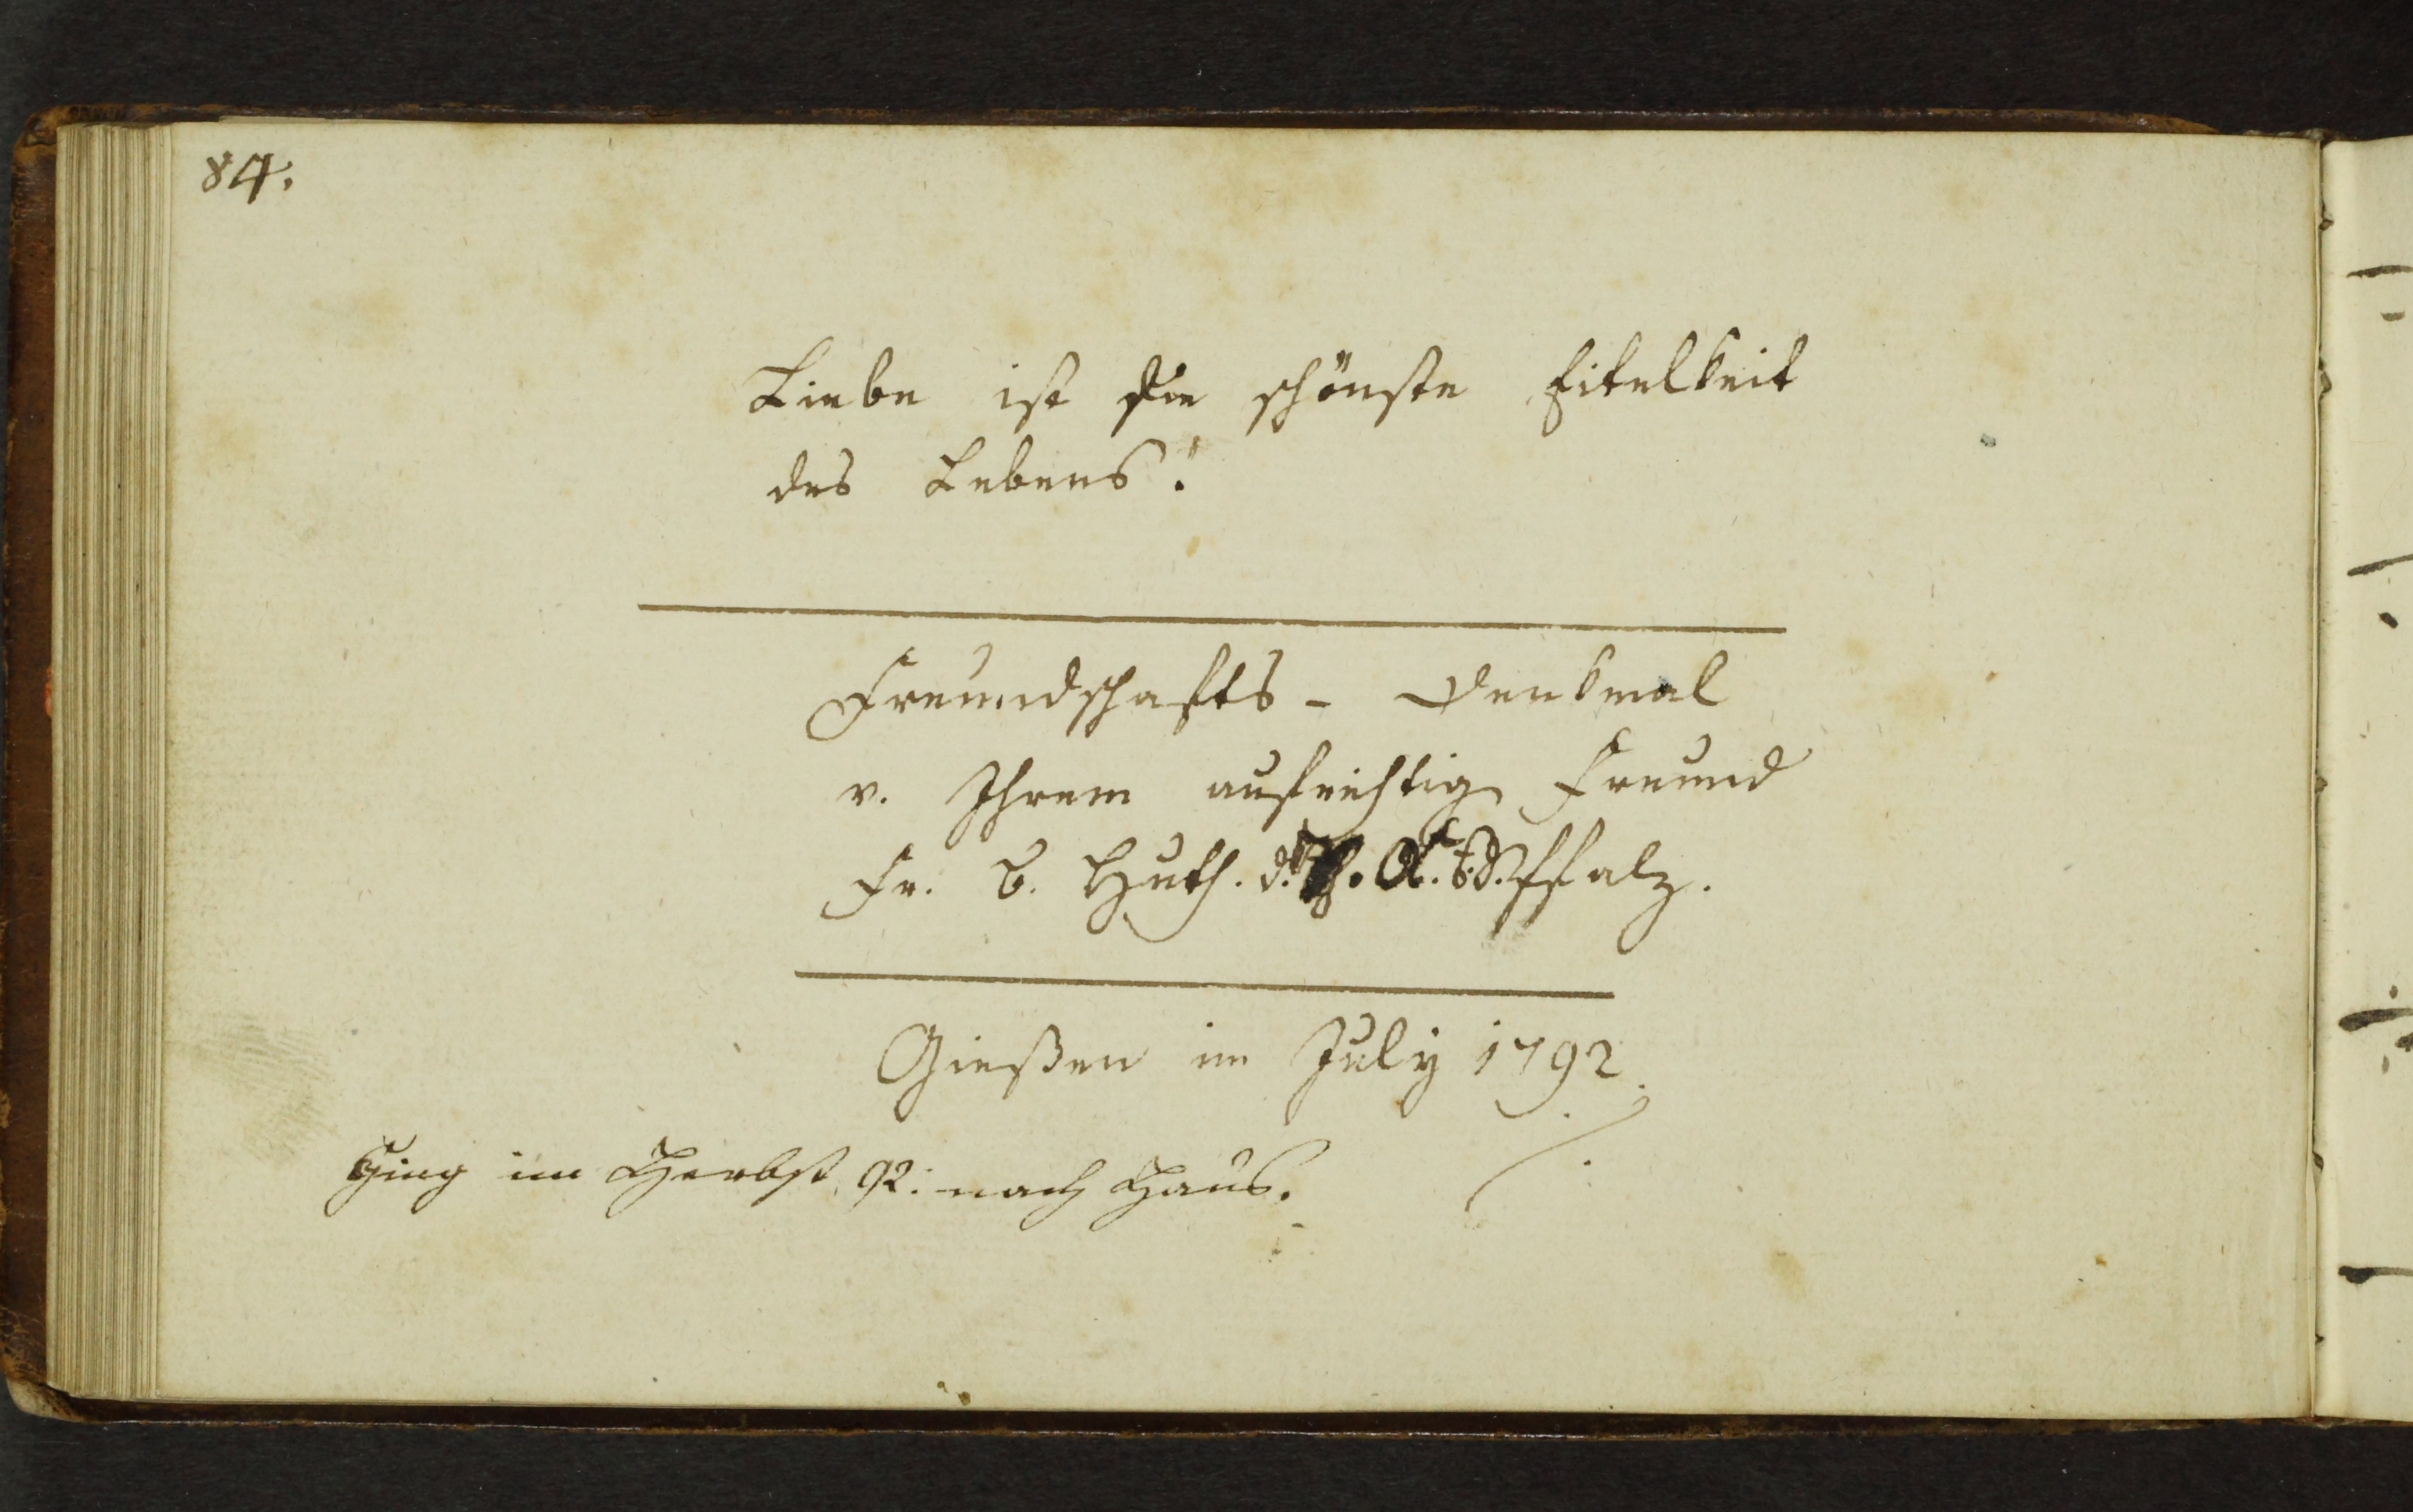 84.
Liebe ist die schönste Eitelkeit
des Lebens!
Freundschafts - Denkmal
v. Ihrem aufrichtig Freund
Fr. C. Huth. d. A. Pfalz.
Gießen im July 1792.
Ging im Herbst 92. nach Haus.